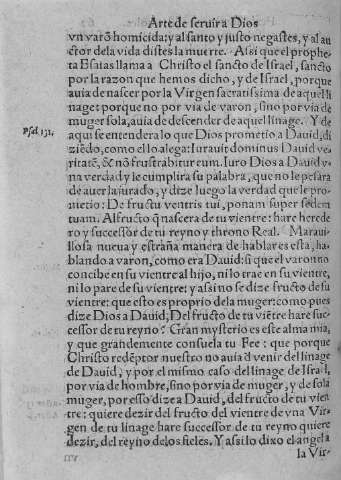 Arte de seruir a Dios
vn varõ homicida: y al santo y justo negastes, y al au
ctor dela vida distes la muerte. Assi que el prophe
ta Esaias llama a Christo el sancto de Israel, sancto
por la razon que hemos dicho, y de Israel, porque
auia de nascer por la Virgen sacratissima de aquel li
naget porque no por via de varon, sino por via de
muger sola, auia de descender de aquel linage. Y de
aqui se entendera lo que Dios prometio a Dauid, di
Psal. 131.
ziẽdo, como el lo alega: Iurauit dominus Dauid ve
ritatẽ, & nõ frustrabitur eum. Iuro Dios a Dauid v
na verdad y le cumplira su palabra, que no le pesara
de auer la jurado, y dize luego la verdad que le pro
metio: De fructu ventris tui, ponam super sedem
tuam. Al fructo q̃ nascera de tu vientre: hare herede
ro y successor de tu reyno y throno Real. Maraui
llosa nueua y estraña manera de hablar es esta, ha
blando a varon, como era Dauid: si que el varon no
concibe en su vientre al hijo, ni lo trae en su vientre,
ni lo pare de su vientre: y assi no se dize fructo de su
vientre: que esto es proprio dela muger: como pues
dize Dios a Dauid, Del fructo de tu viẽtre hare suc-
cessor de tu reyno? Gran mysterio es este alma mia,
y que grandemente consuela tu Fee: que porque
Christo redẽptor nuestro no auia d̃ venir del linage
de Dauid, y por el mismo caso del linage de Israel,
por via de hombre, sino por via de muger, y de sola
muger, por esso dize a Dauid, del fructo de tu vien
tre: quiere dezir del fructo del vientre de vna Vir-
gen de tu linage hare successor de tu reyno quiere
dezir, del reyno de los fieles. Y assi lo dixo el angel a
la Vir-